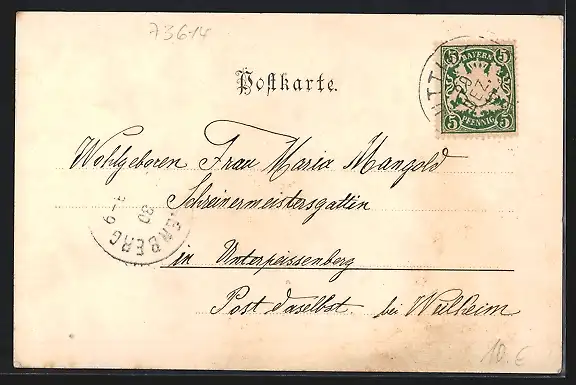 73614
Postkarte.
5 BAYERN 5
5 PFENNIG 5
Wohlgeboren Frau Maria Mangold
Schreinermeistersgattin
in Unterpeissenberg
Post daselbst bei Weilheim
ENBERG
30
10.€